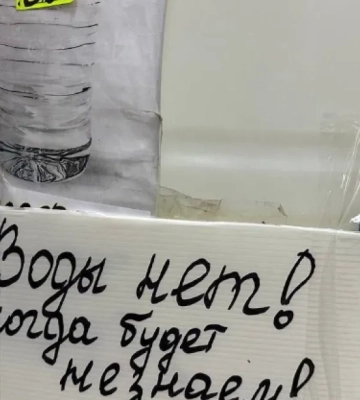 Воды нет!
когда будет
не знаем!